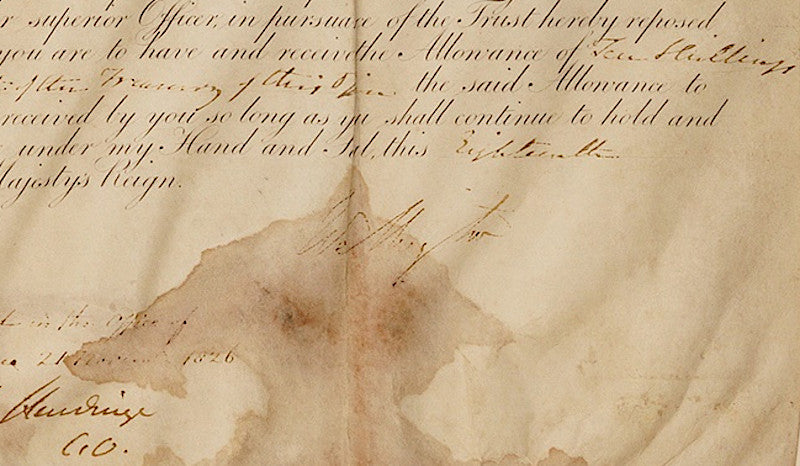 r superior Officer, in pursuance of the Trust hereby reposed
you are to have and receive the Allowance of Ten Shillings
of the Treasury of this the said Allowance to
received by you so long as yu shall continue to hold and
under my Hand and Sel, this Eighteenth
Majesty's Reign.
Wellington
in the Office of
21 November 1826
Hardinge
C.O.